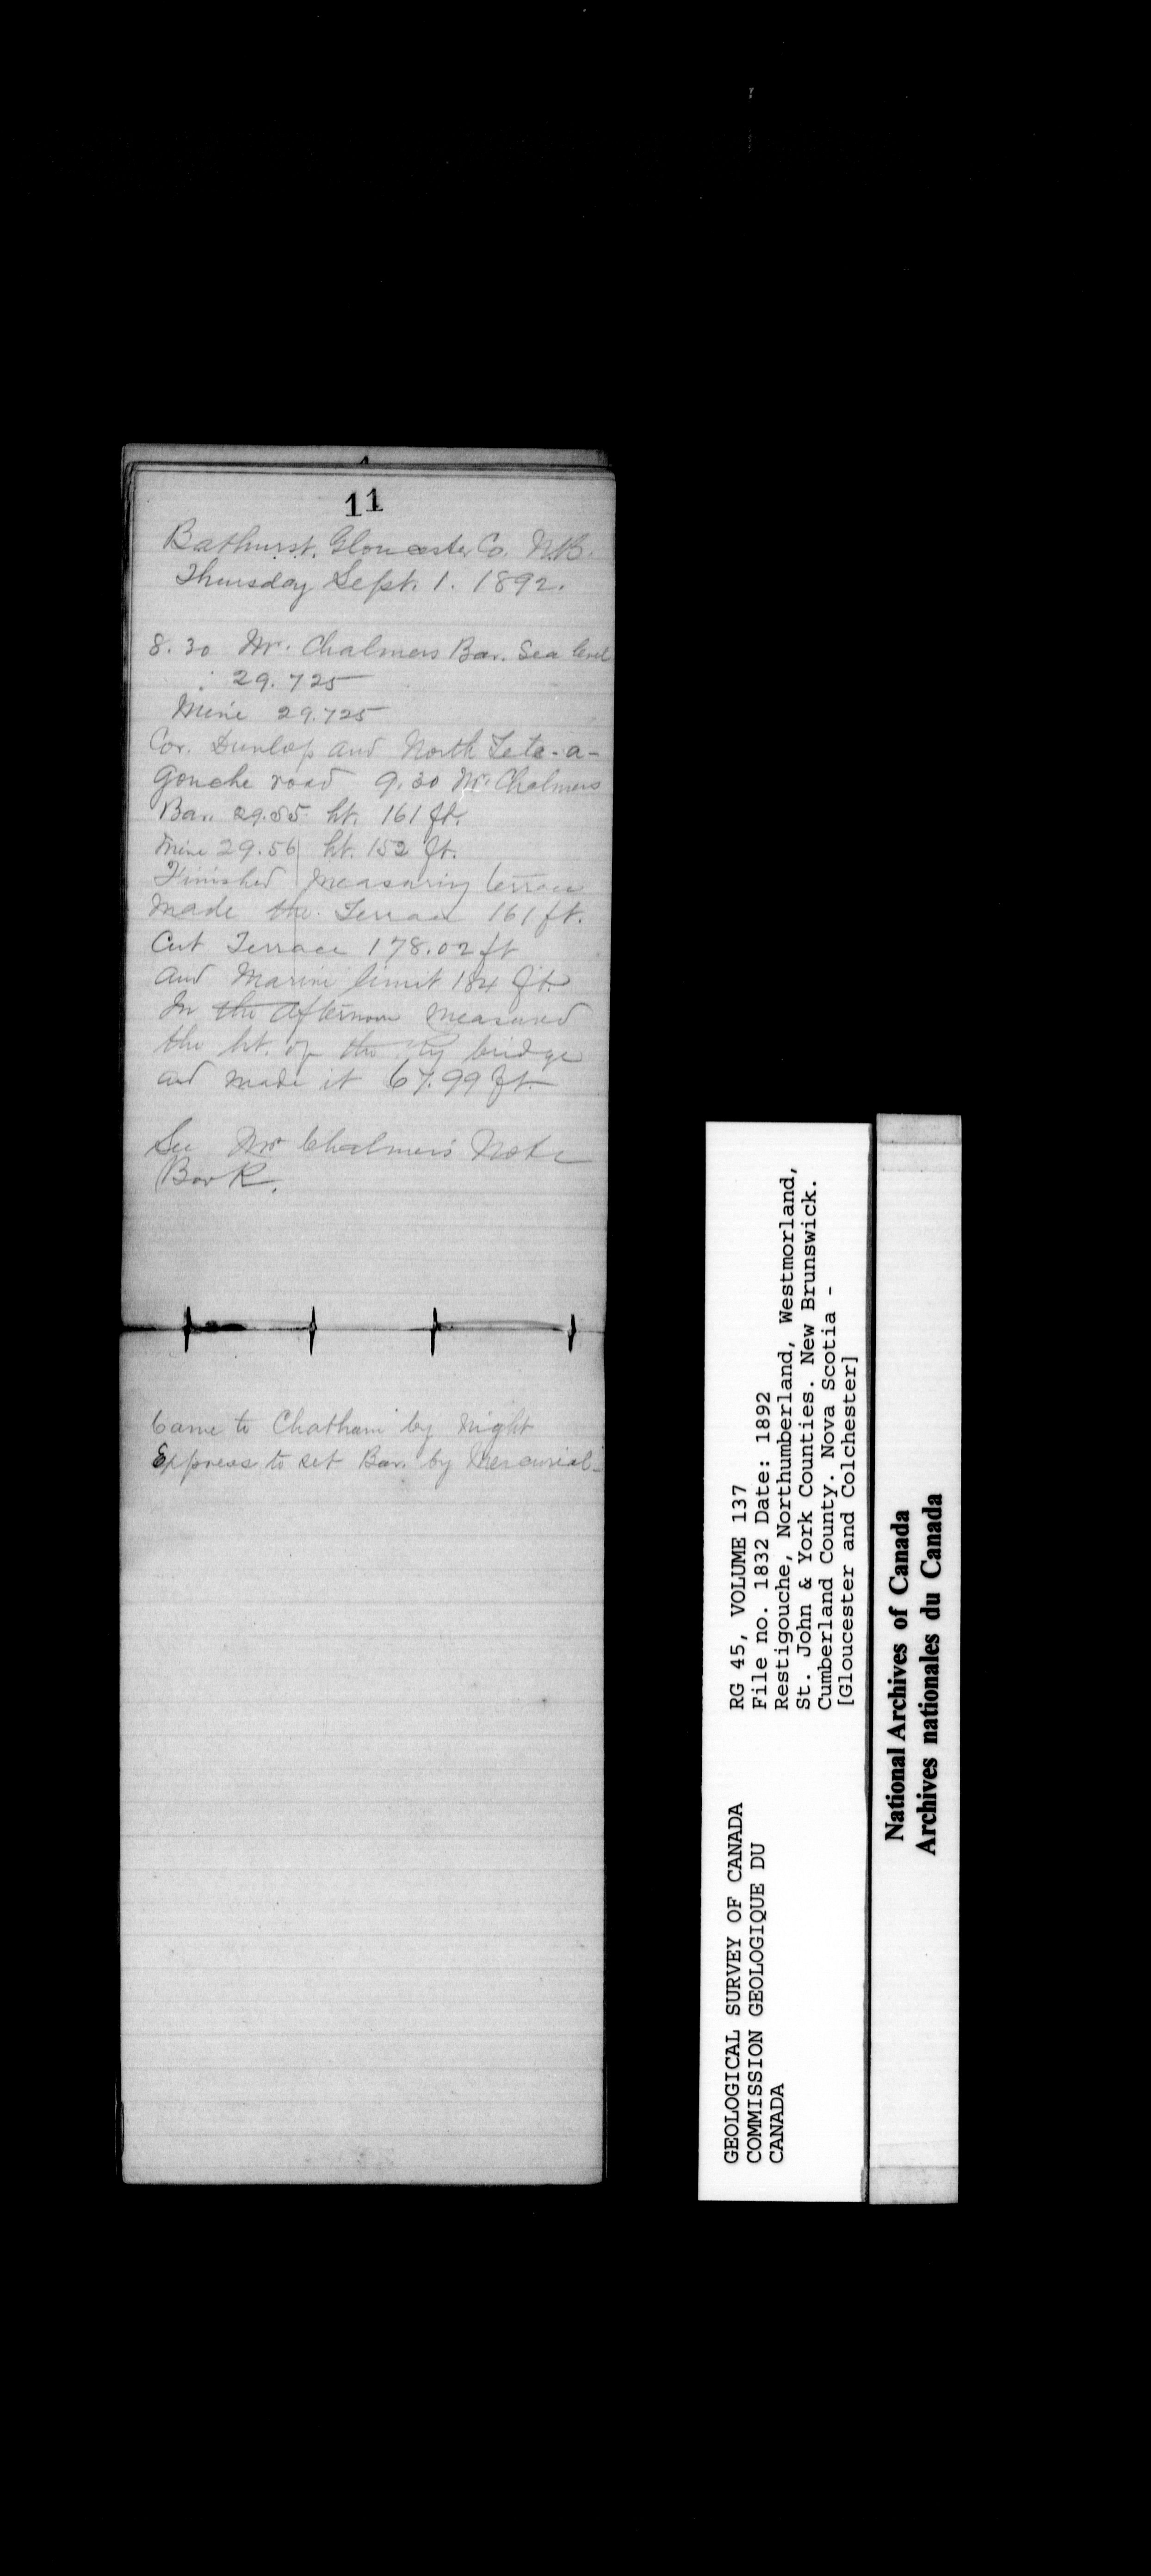 11
Bathurst. Gloucester Co. N.B.
Thursday Sept. 1. 1892.
8.30 Mr. Chalmers Bar. Sea level
29.725
Mine 29.725
Cor. Dunlop and North Tete-a-
gouche road 9.30 Mr. Chalmers
Bar. 29.55 ht. 161 ft.
Mine 29.56 ht. 152 ft.
Finished measuring terrace
made the Terrace 161 ft.
Cut Terrace 178.02 ft
and Marine limit 184 ft.
In the afternoon measured
the ht. of the Ry bridge
and made it 67.99 ft.
See Mr Chalmers' Note
Book.
Came to Chatham by night
Express to set Bar. by Mercurial-
GEOLOGICAL SURVEY OF CANADA
COMMISSION GEOLOGIQUE DU
CANADA
RG 45, VOLUME 137
File no. 1832 Date: 1892
Restigouche, Northumberland, Westmorland,
St. John & York Counties. New Brunswick.
Cumberland County. Nova Scotia -
[Gloucester and Colchester]
National Archives of Canada
Archives nationales du Canada